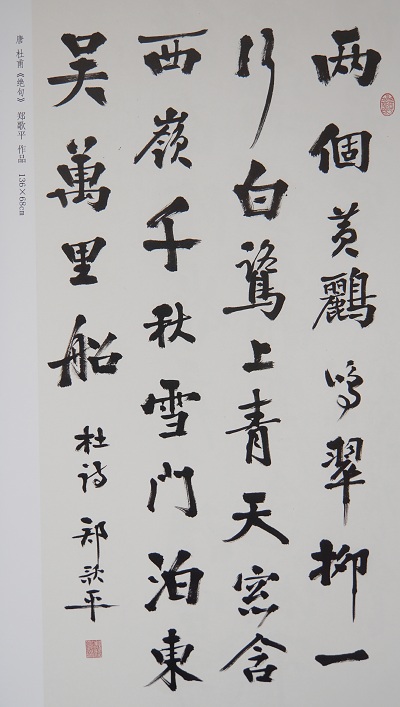 两個黄鸝鸣翠柳一
行白鷺上青天窓含
西嶺千秋雪門泊東
吴萬里船
杜诗 郑歌平
唐 杜甫《绝句》 郑歌平 作品 136×68cm